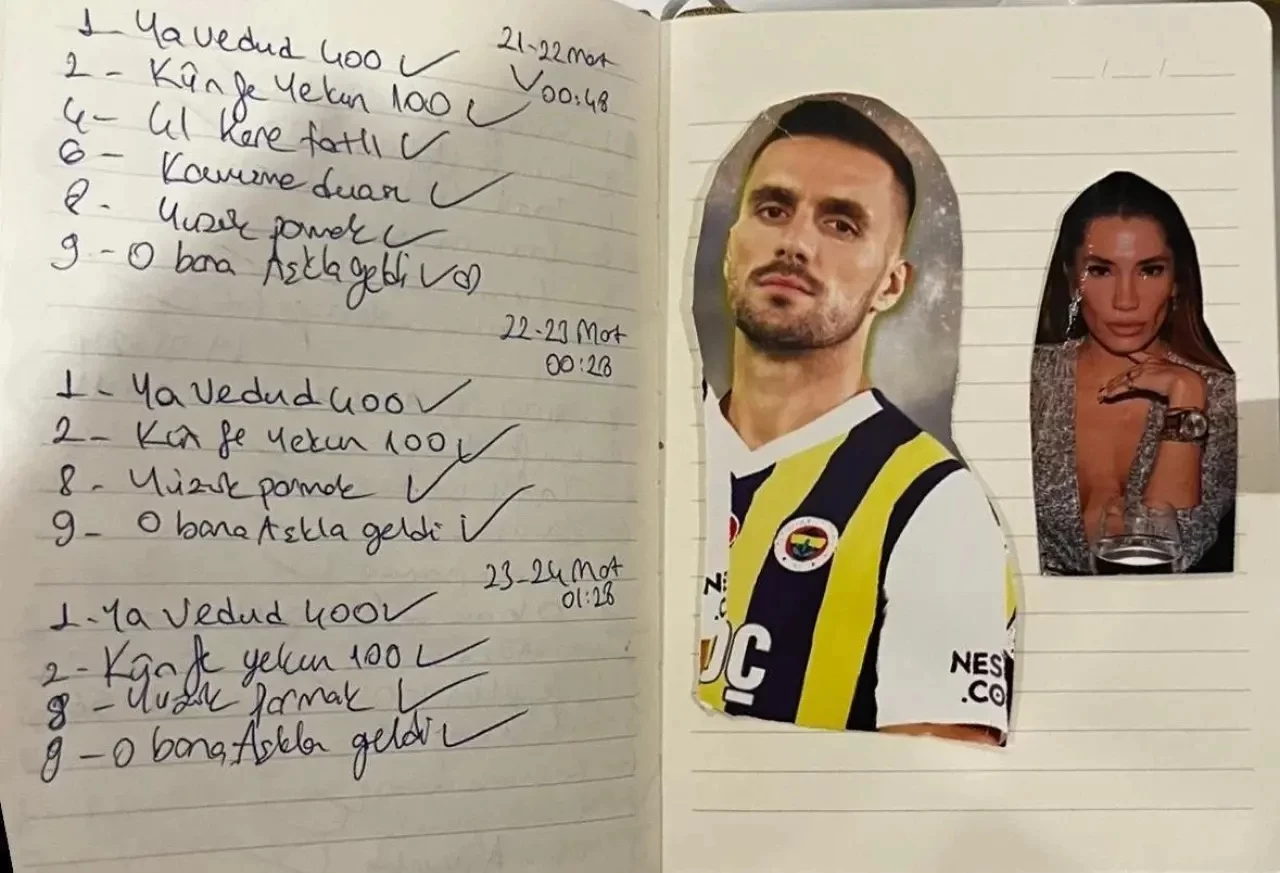 1- Ya Vedud 400 ✓
21-22 Mart
✓ 00:48
2- Kün fe Yekün 100 ✓
4- 41 Kere fatlı ✓
6- Kavuşma duası ✓
8- Yüzük parmak ✓
9- O bana Aşkla geldi ✓
22-23 Mart
00:28
1- Ya Vedud 400 ✓
2- Kün fe Yekün 100 ✓
8- Yüzük parmak ✓
9- O bana Aşkla geldi ✓
23-24 Mart
01:28
1- Ya Vedud 400 ✓
2- Kün fe yekün 100 ✓
8- Yüzük parmak ✓
9- O bana Aşkla geldi ✓
OÇ
NES
.CO